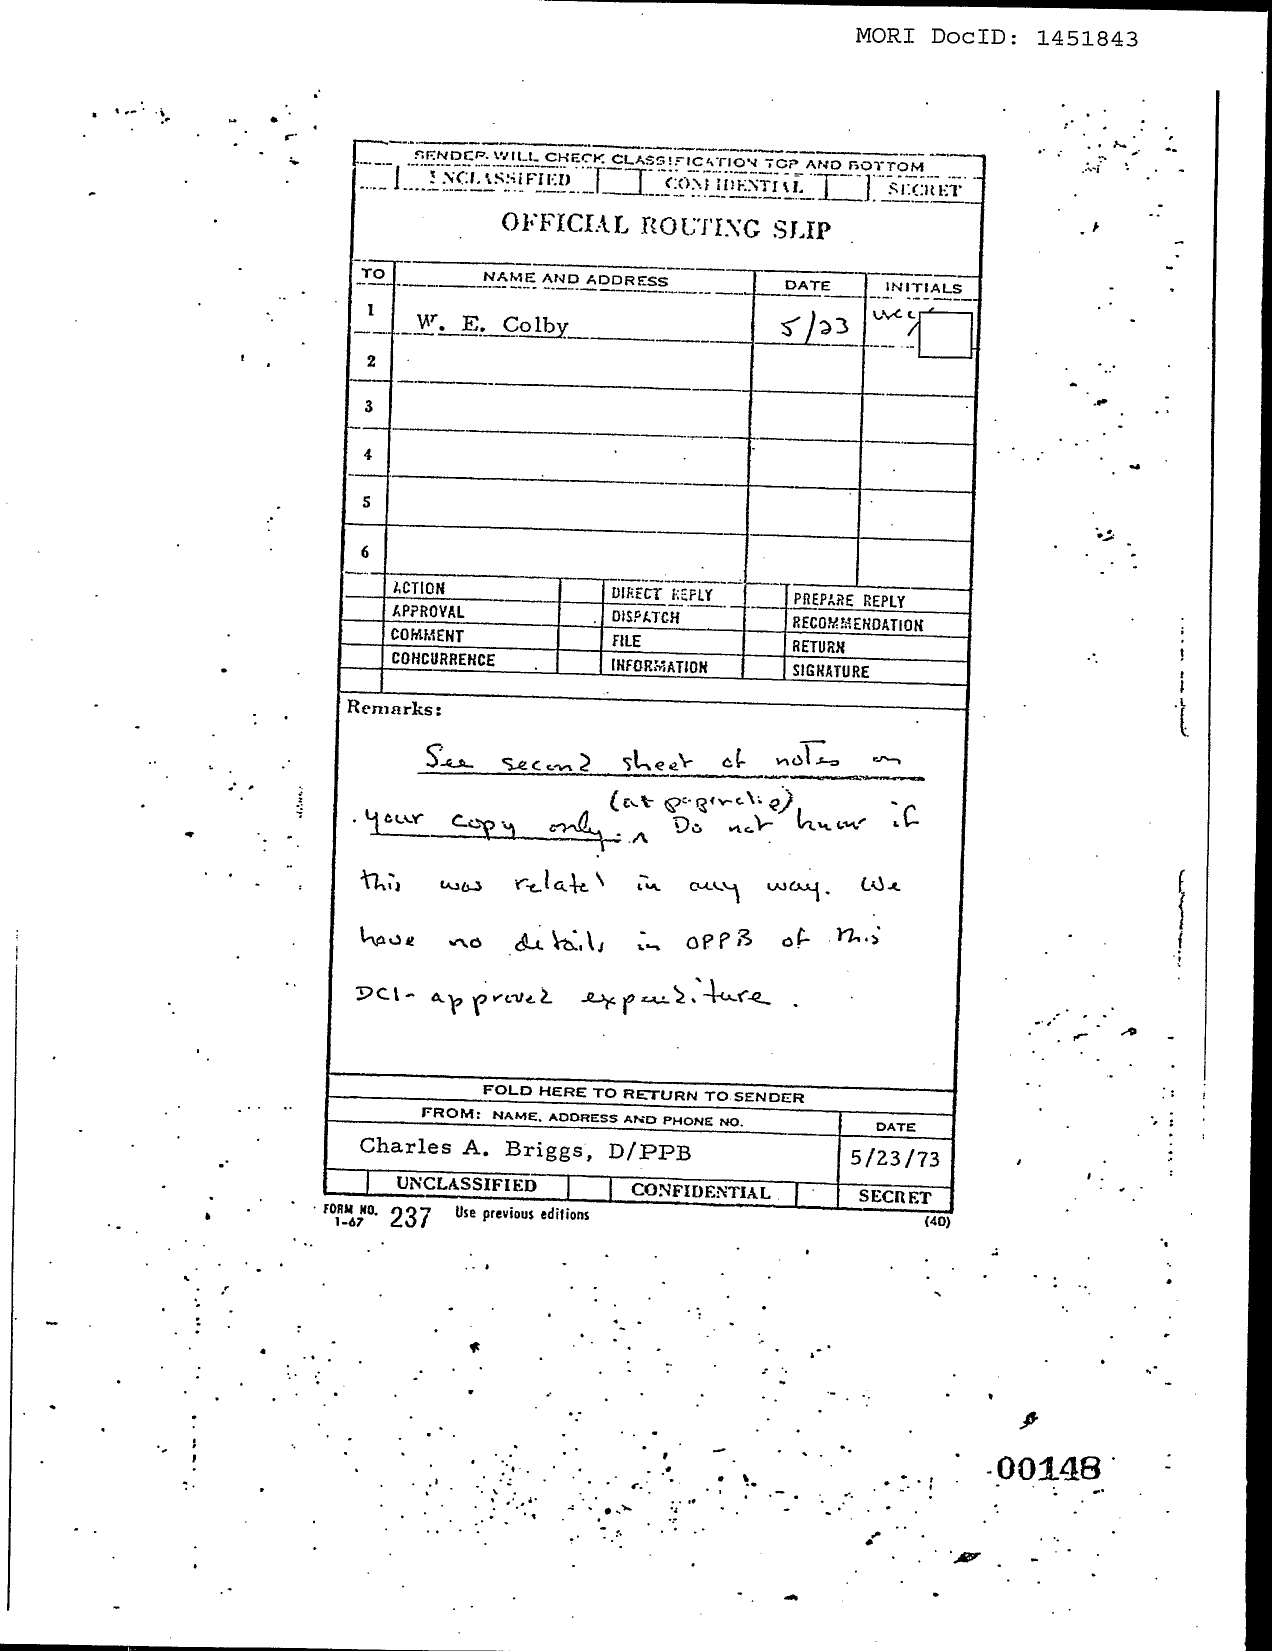 MORI DocID: 1451843
SENDER WILL CHECK CLASSIFICATION TOP AND BOTTOM
UNCLASSIFIED CONFIDENTIAL SECRET
OFFICIAL ROUTING SLIP
TO NAME AND ADDRESS DATE INITIALS
1 W. E. Colby 5/23
2
3
4
5
6
ACTION DIRECT REPLY PREPARE REPLY
APPROVAL DISPATCH RECOMMENDATION
COMMENT FILE RETURN
CONCURRENCE INFORMATION SIGNATURE
Remarks:
See second sheet of notes on
(at paperclip)
your copy only. Do not know if
this was related in any way. We
have no details in OPPB of this
DCI-approved expenditure.
FOLD HERE TO RETURN TO SENDER
FROM: NAME, ADDRESS AND PHONE NO. DATE
Charles A. Briggs, D/PPB 5/23/73
UNCLASSIFIED CONFIDENTIAL SECRET
FORM NO. 237 Use previous editions (40)
1-67
00148